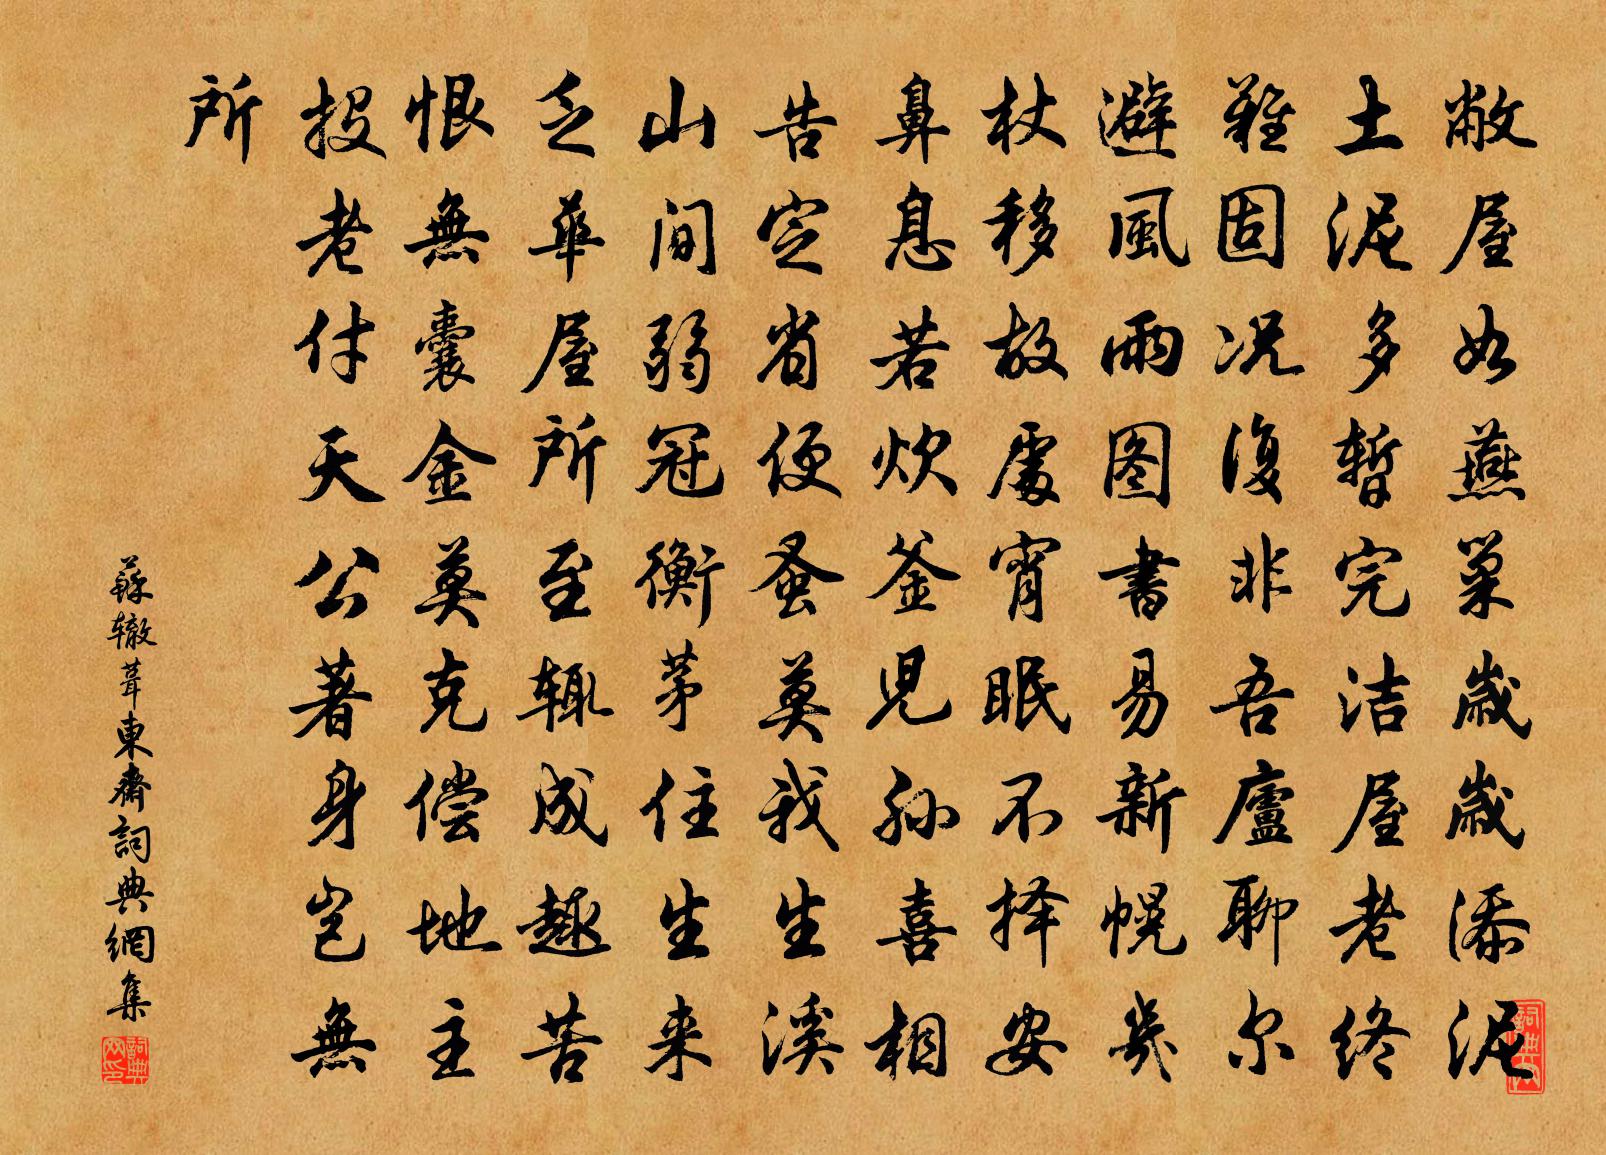 敝屋如燕巢歲歲添泥
土泥多暫完洁屋老终
難固況復非吾廬聊尔
避風雨图書易新幌幾
杖移故處宵眠不择安
鼻息若炊釜兒孙喜相
告定省便蚤莫我生溪
山间弱冠衡茅住生来
乏華屋所至辄成趣苦
恨無囊金莫克偿地主
投老付天公著身岂無
所
蘇辙葺東齋詞典網集
詞典网
詞典网印